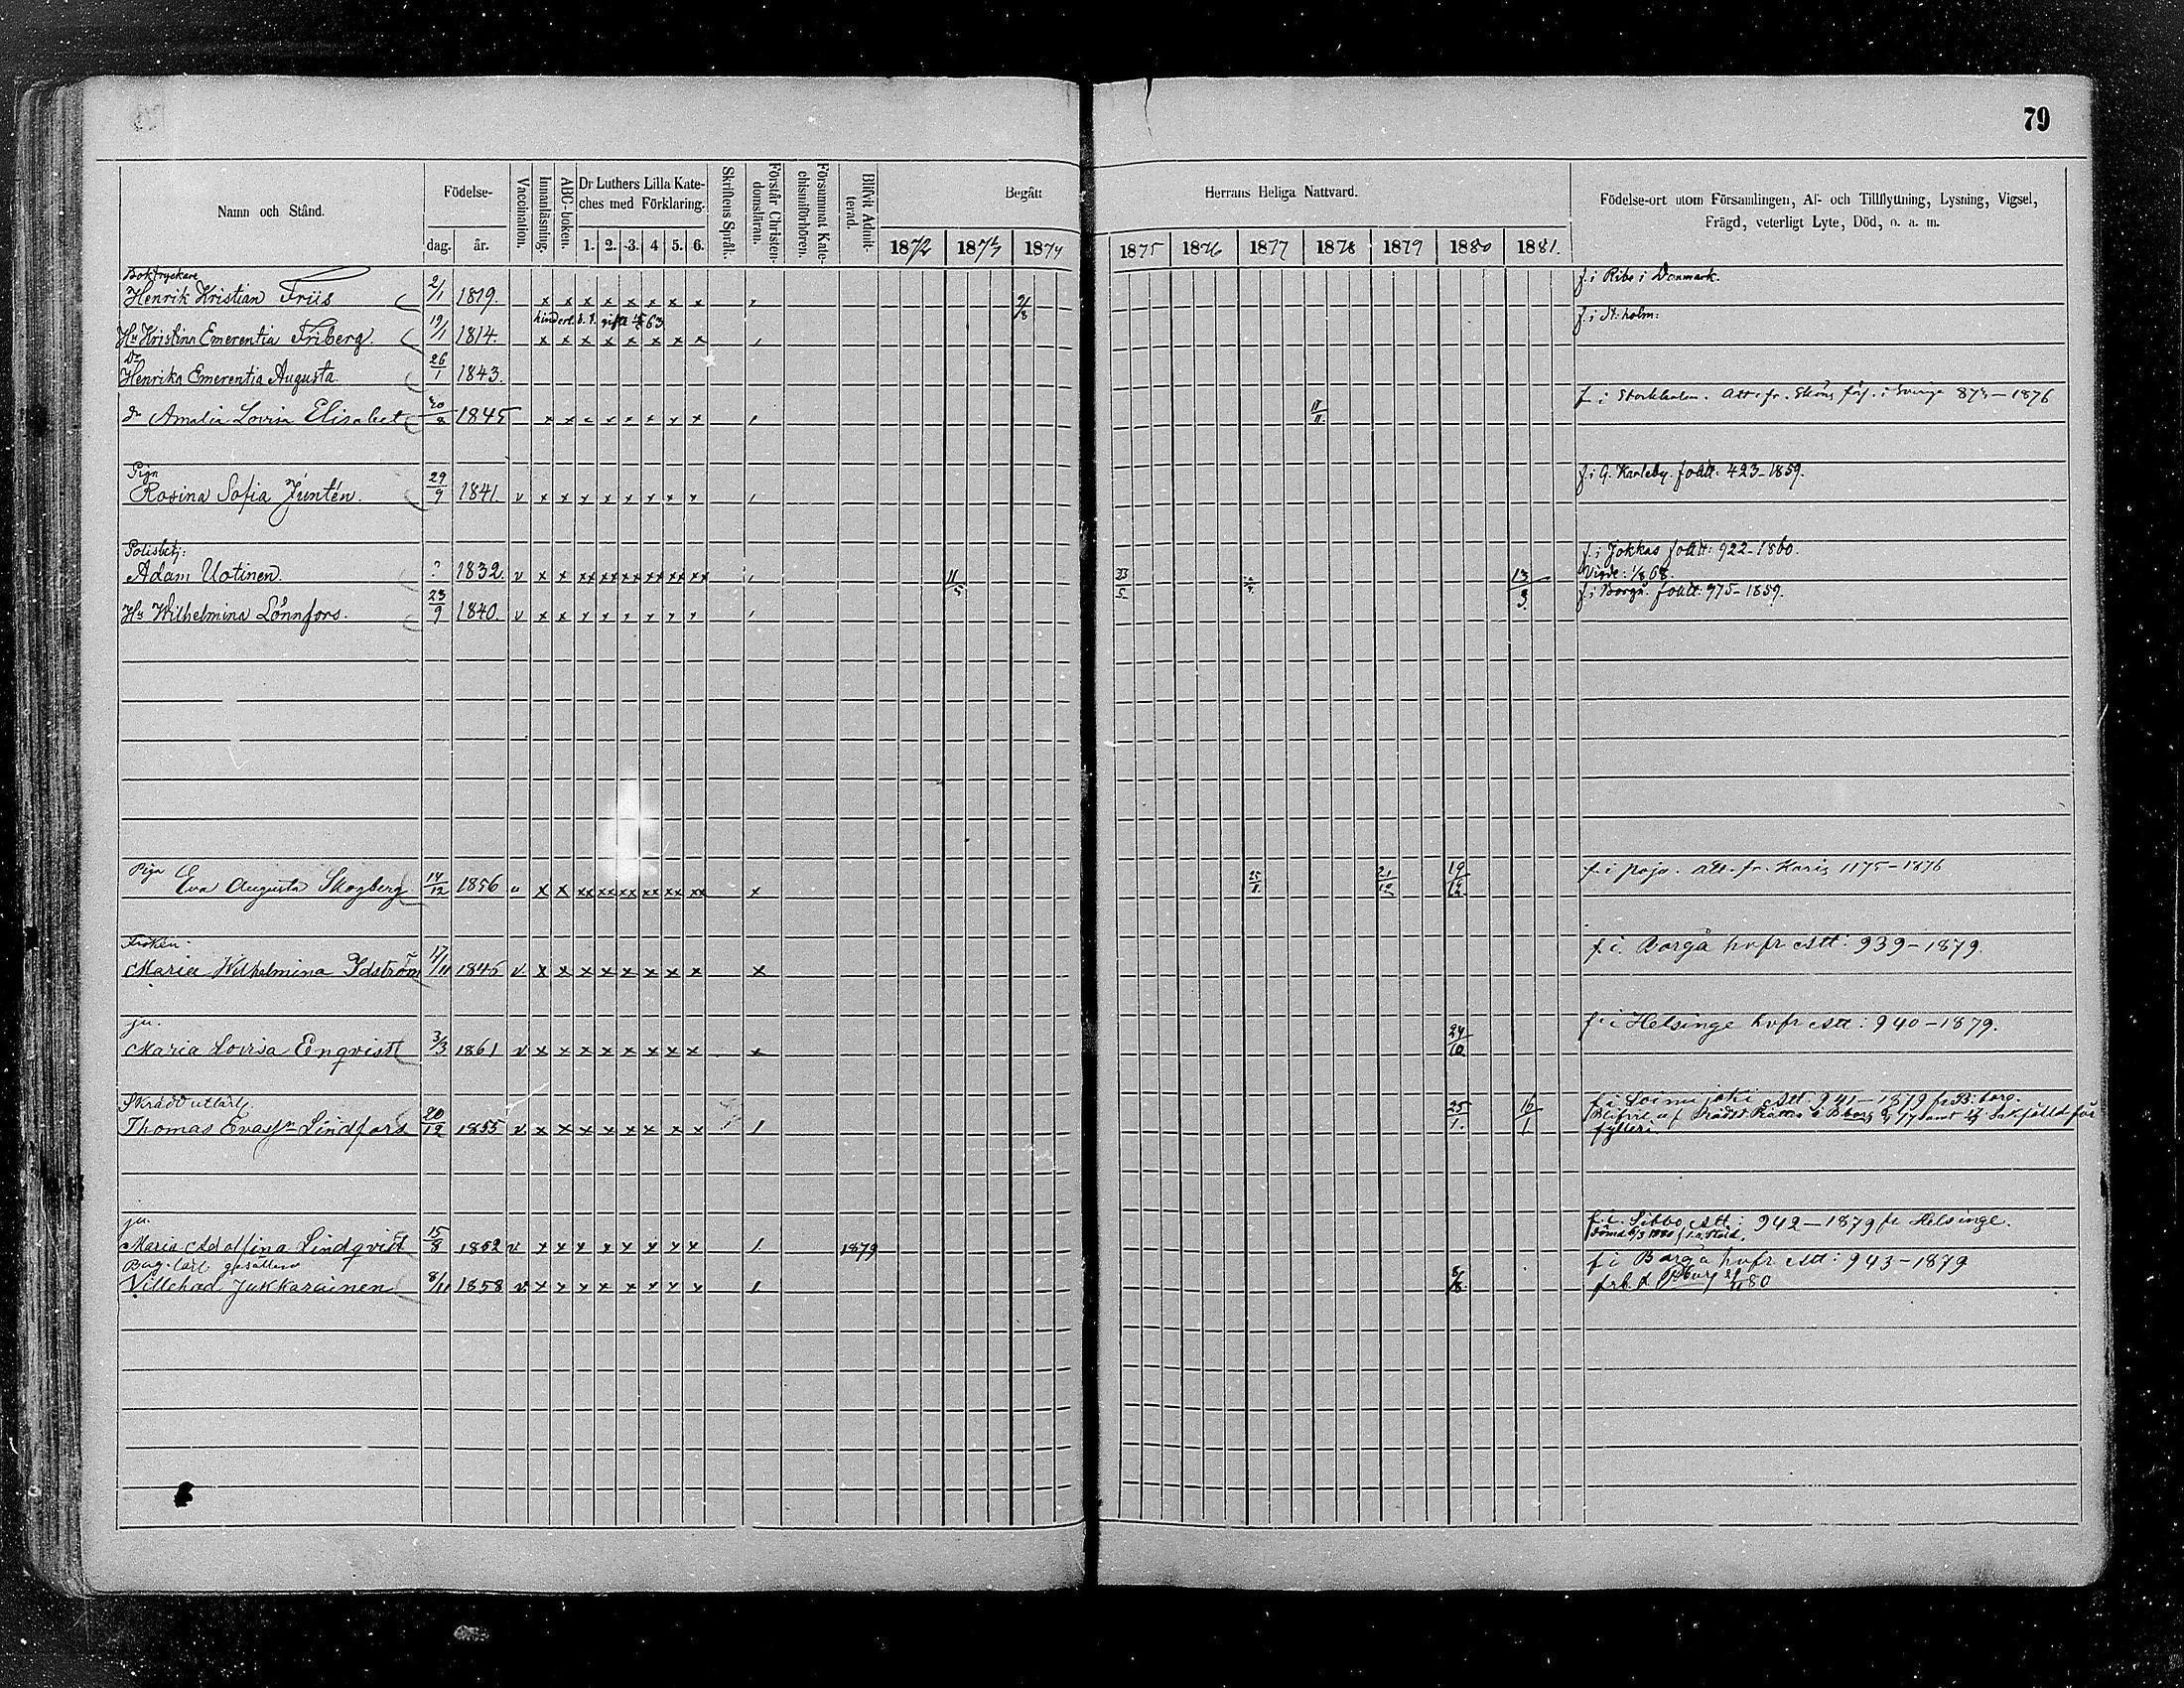 79
Namn och Stånd. Födelse- dag. år. Vaccination. Innanläsning. ABC-boken. Dr Luthers Lilla Kateches med Förklaring. 1. 2. 3. 4 5. 6. Skriftens Språk. Förstår Christendomsläran. Försummat Katechismiförhören. Blifvit Admitterad. Begått Herrans Heliga Nattvard. 1872 1873 1874 1875 1876 1877 1878 1879 1880 1881. Födelse-ort utom Församlingen, Af- och Tillflyttning, Lysning, Vigsel, Frägd, veterligt Lyte, Död, o. a. m.
Boktryckare
Henrik Kristian Friis 2/1 1819. x x x x x x x x 9/8 f. i Ribe i Danmark.
hinderl. b. t. gift 63
Hu Kristina Emerentia Friberg. 19/1 1814. x x x x x x x x f. i St. holm.
Dr
Henrika Emerentia Augusta 26/1 1843.
dr Amalia Lovisa Elisabet 1845 x x x x x x x x f. i Stockholm. Att. fr. i Sverge 873-1876
Piga
Rosina Sofia Juntén. 29/9 1841. v x x x x x x x x f. i G. Karleby. f. o. att: 423-1859.
Polisbetj:
Adam Uotinen. ? 1832. v x x xx xx xx xx xx xx 11/5 23/5 13/3 f. i Jokkas f. o. att: 922-1860.
Vigde: 68.
Hu Wilhelmina Lönnfors. 23/9 1840. v x x x x x x x x f. i Borgå. f. o. att: 975-1859.
Piga Eva Augusta Skogberg 14/12 1856 v x x xx xx xx xx xx xx x 25/1 21/12 19/12 f. i Pojo. att. fr. Karis 1175-1876
Fröken
Maria Wilhelmina Idström 17/11 1845 v x x x x x x x x x f. i. Borgå hvfr Att: 939-1879.
pu.
Maria Lovisa Enqvist 3/3 1861 v x x x x x x x x x 24/10 f. i Helsinge hvfr Att: 940-1879.
Skrädd
Thomas Evasn Lindfors 20/12 1855 v x x x x x x x x 25/1. 16/1 f. i Att: 941-1879 fr. B. borg.
Blifvit af Rådst. Rätten i samt Sakfälld för
fylleri.
pu.
Maria Adolfina Lindqvist 15/8 1852 v x x x x x x x x 1879 f. i. Sibbo, Att: 942-1879 fr Helsinge.
Bag. lärl. gesällen
Villehad Jukkarainen 8/11 1858 v x x x x x x x x 8/8. f i Borgå hvfr Att: 943-1879
frb. f. 80